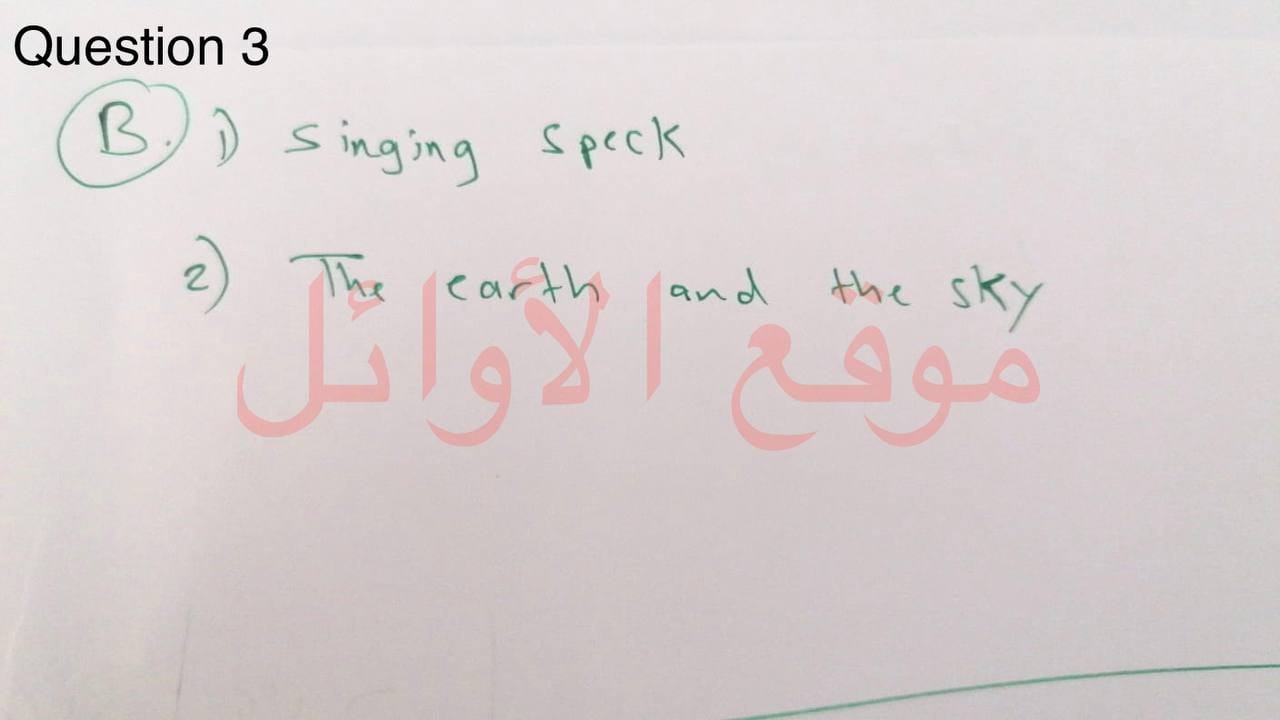 Question 3
B. 1) Singing speck
2) The earth and the sky
موقع الأوائل